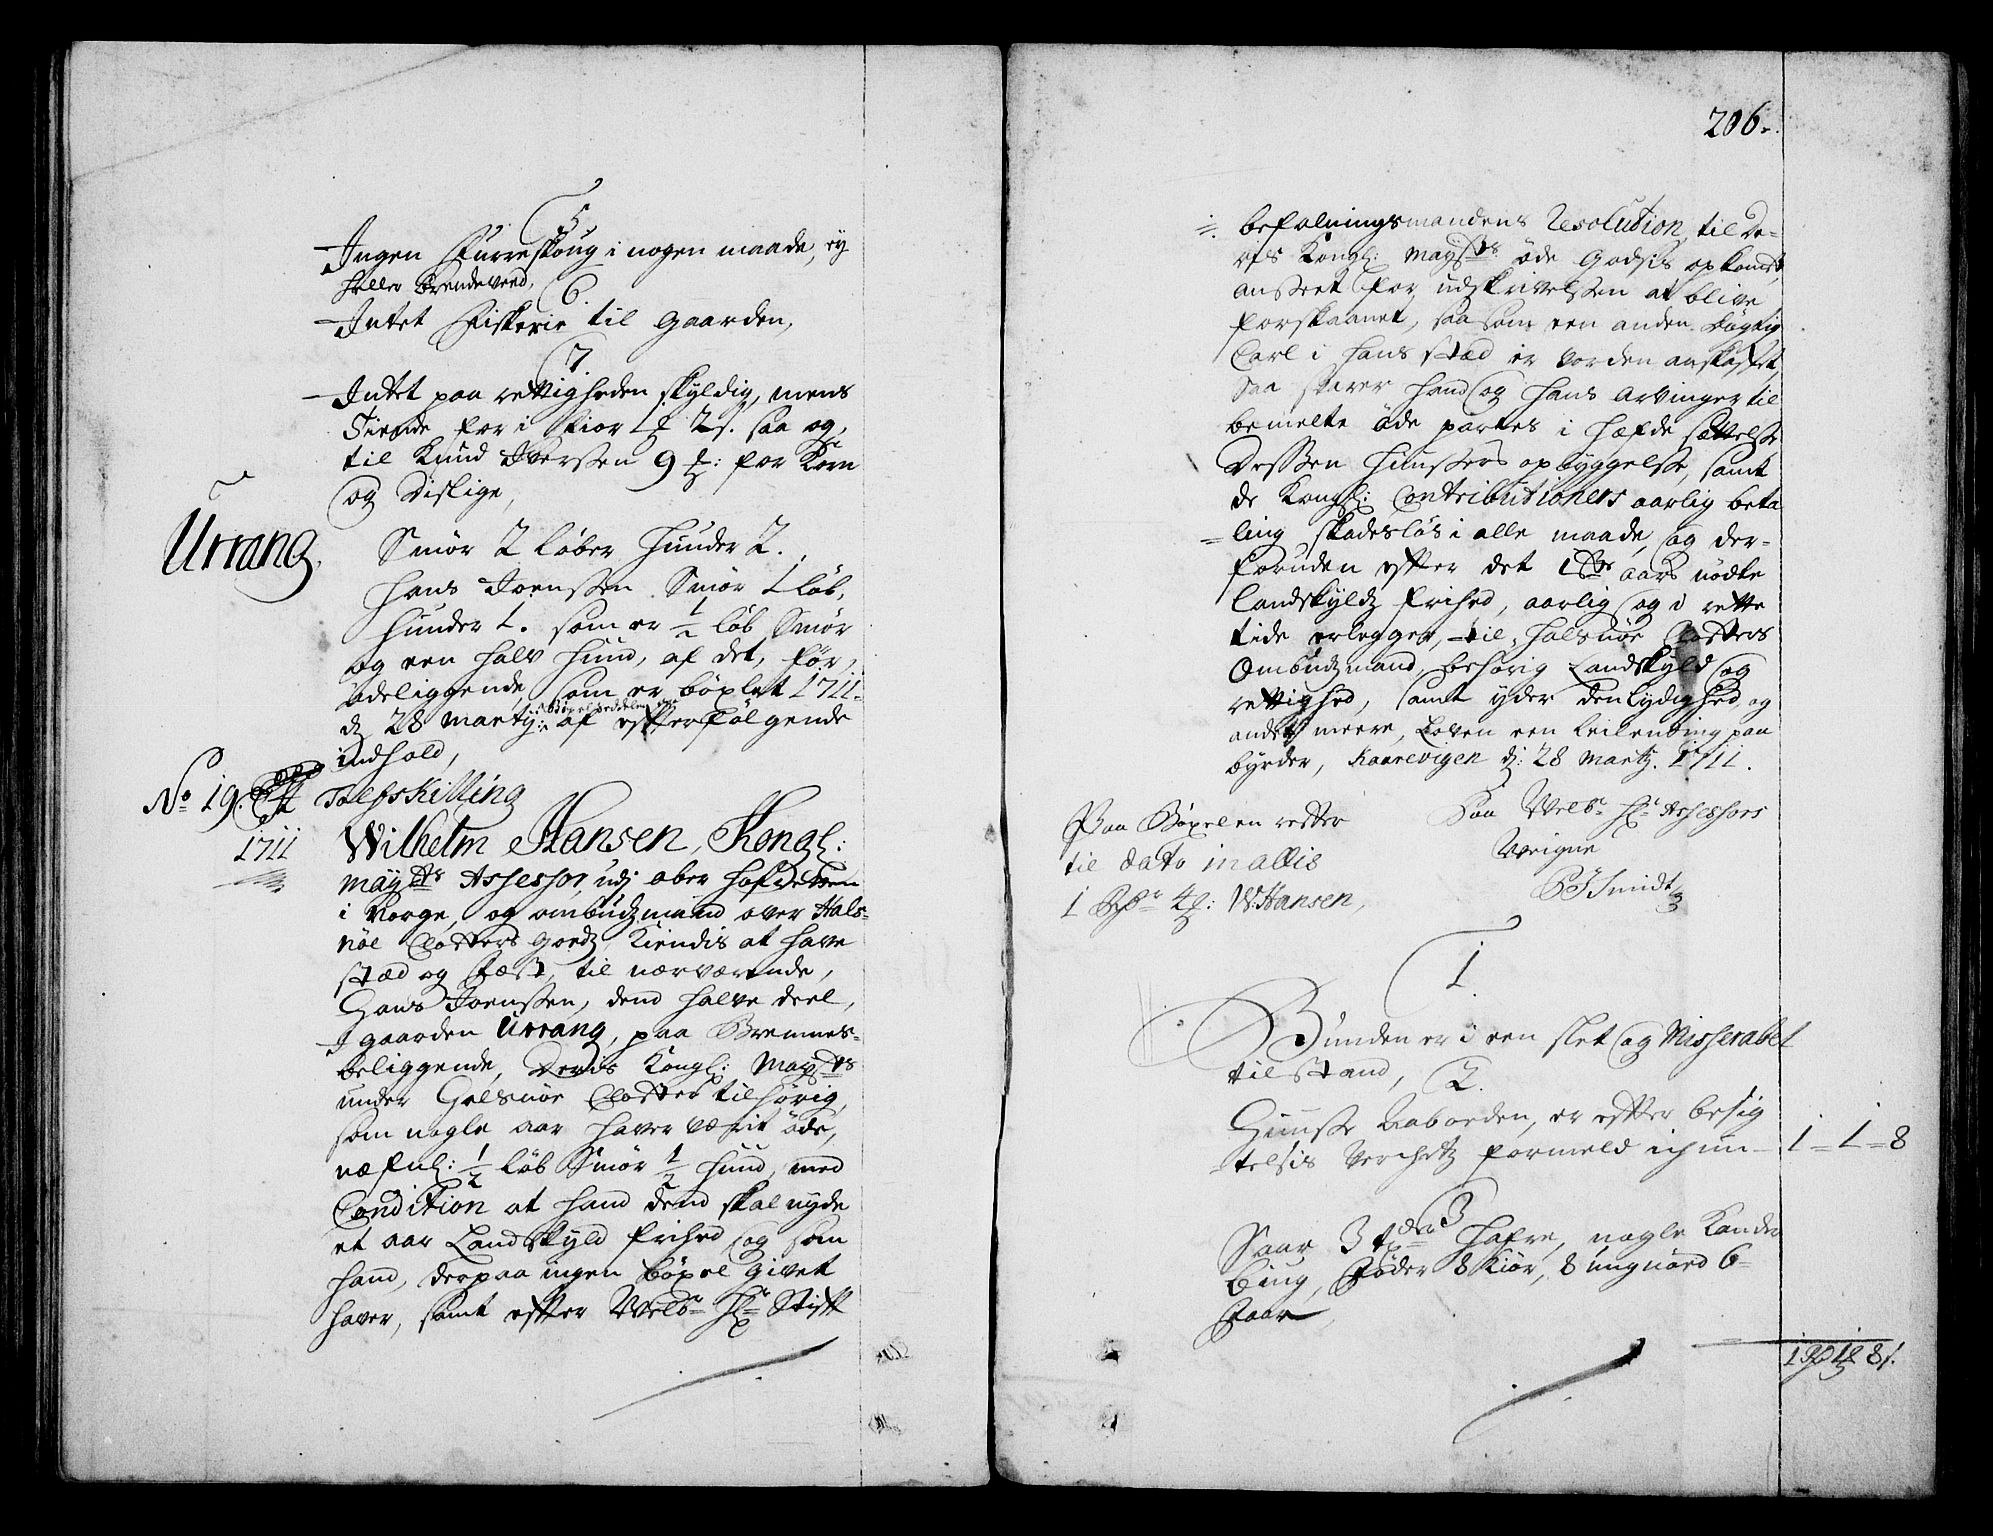 5
Ingen Furreskoug i nogen maade, ey
heller brendeved,
6.
Intet Fiskerie til gaarden,
7
Intet paa rettigheden skyldig, mens
Tiende for i Fior 1 ₰ 2 s. saa og,
til Knud Iverssen 9 ₰: for Korn
og dislige,
Urrang.
Smör 2 löber huuder 2.
Hans Joenssen Smör 1 löb,
huuder 1. som er ½ löb Smör
og een halv huud, af det, för,
ödeliggende, som er böxlet 1711.
dſ 28 Martij: af Böxelseddelen er
efterfölgende
indhold,
No 19.
1711
Tolfskilling
Wilhelm Hansen, Kongl:
Mayts Assessor, udj ober hofretten
i Norge, og ombudzmand over Hals-
nöe Closters Godz, Kiendis at have
stæd og fæst, til nærværende,
Hans Joenssen, dend halve deel,
I gaarden Urrang, paa Bremnes-
beliggende, Deris Kongl: Mayts
under Halsnöe Closter tilhörig,
som nogle aar haver værit öde,
næfnl: ½ löb Smör ½ huud, med
Condition at hand dend skal nyde
et aar Landskyld frihed, og som
hand, derpaa ingen böxel givet
haver, samt efter Welbr Hr Stift
206.
befalningsmandens Resolution, til De-
ris Kongl: Mayts öde Godsis opkomst,
anseet for udskrivelssen at blive
forskaanet, saasom een anden dögtig
Carl i hans stæd er vorden anskaffet,
Saa svarer hand og hans arvinger til
bemelte öde partes i hæfde sættelse
Dessen huussers opbyggelse, samt
de Kongl: Contributioners aarlig beta
ling skadeslös i alle maade, og der-
foruden efter det 1ste aars nödte
landskyldz frihed, aarlig og i rette
tide erlegger, til Halsnöe Closters
Ombudzmand, behörig Landskyld og
rettighed, samt yder den lydighed, og
andet meere, Loven een leilending paa
byrder, Kaarevigen dſ: 28 Martz. 1711.
Paa Böxelen rester
til dato in allis
1 Rdr 4 ₰: WHansen,
Paa Welbr Hr Assessors
Veigne
Smidt
1.
Bunden er i een slet og Misserabel
tilstand,
2.
Huusse Aaboeden, er efter besig
telsis Verchetz formeld ichun - 1 - 1 - 8
3
Saar 3 tdr hafre, nogle Kander
biug, föder 8 Kiör, 8 ungnöed 6
Faar
1 Rd 1 ₰ 8 s.